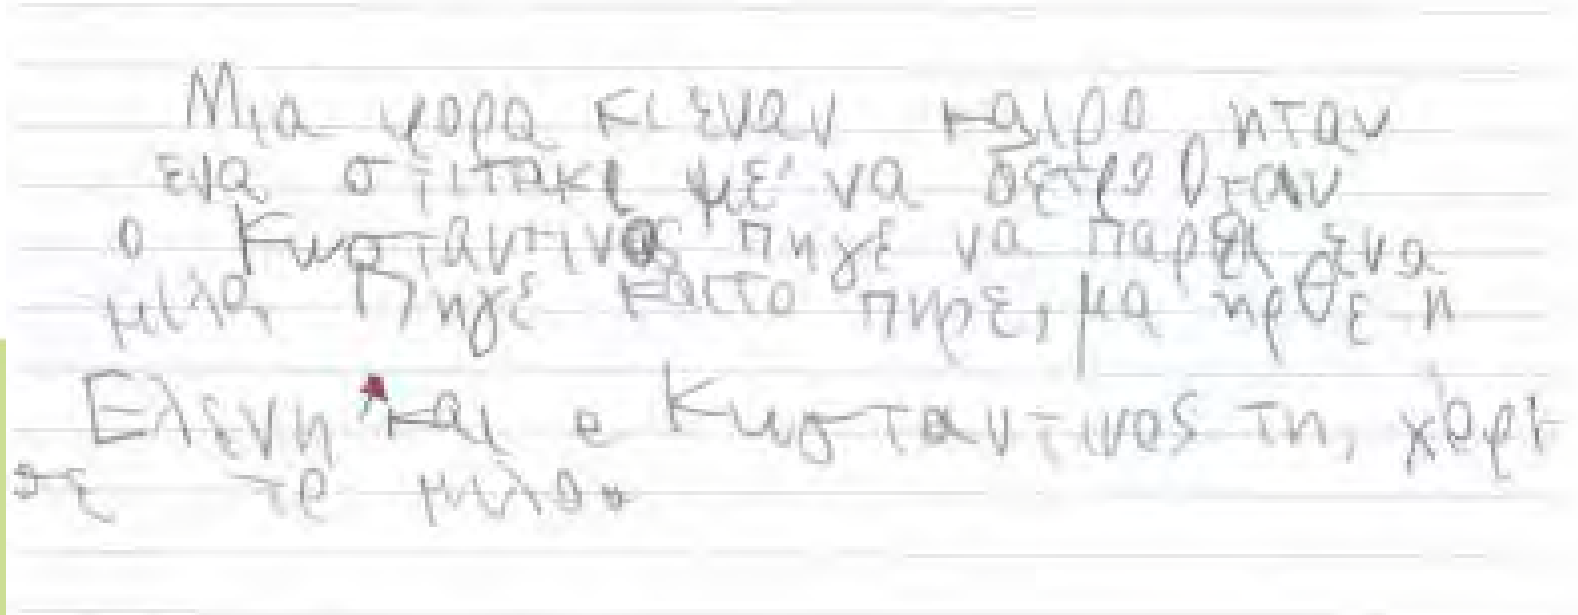 Μια φορα κι εναν καιρο ηταν
ενα σπιτακι με να δετρο Οταν
ο Κωσταντινος πηγε να παρει ενα
μιλο, Πηγε και το πηρε, μα ηρθε η
Ελενη και ο Κωσταντινος τη, χαρι
σε το μιλο.